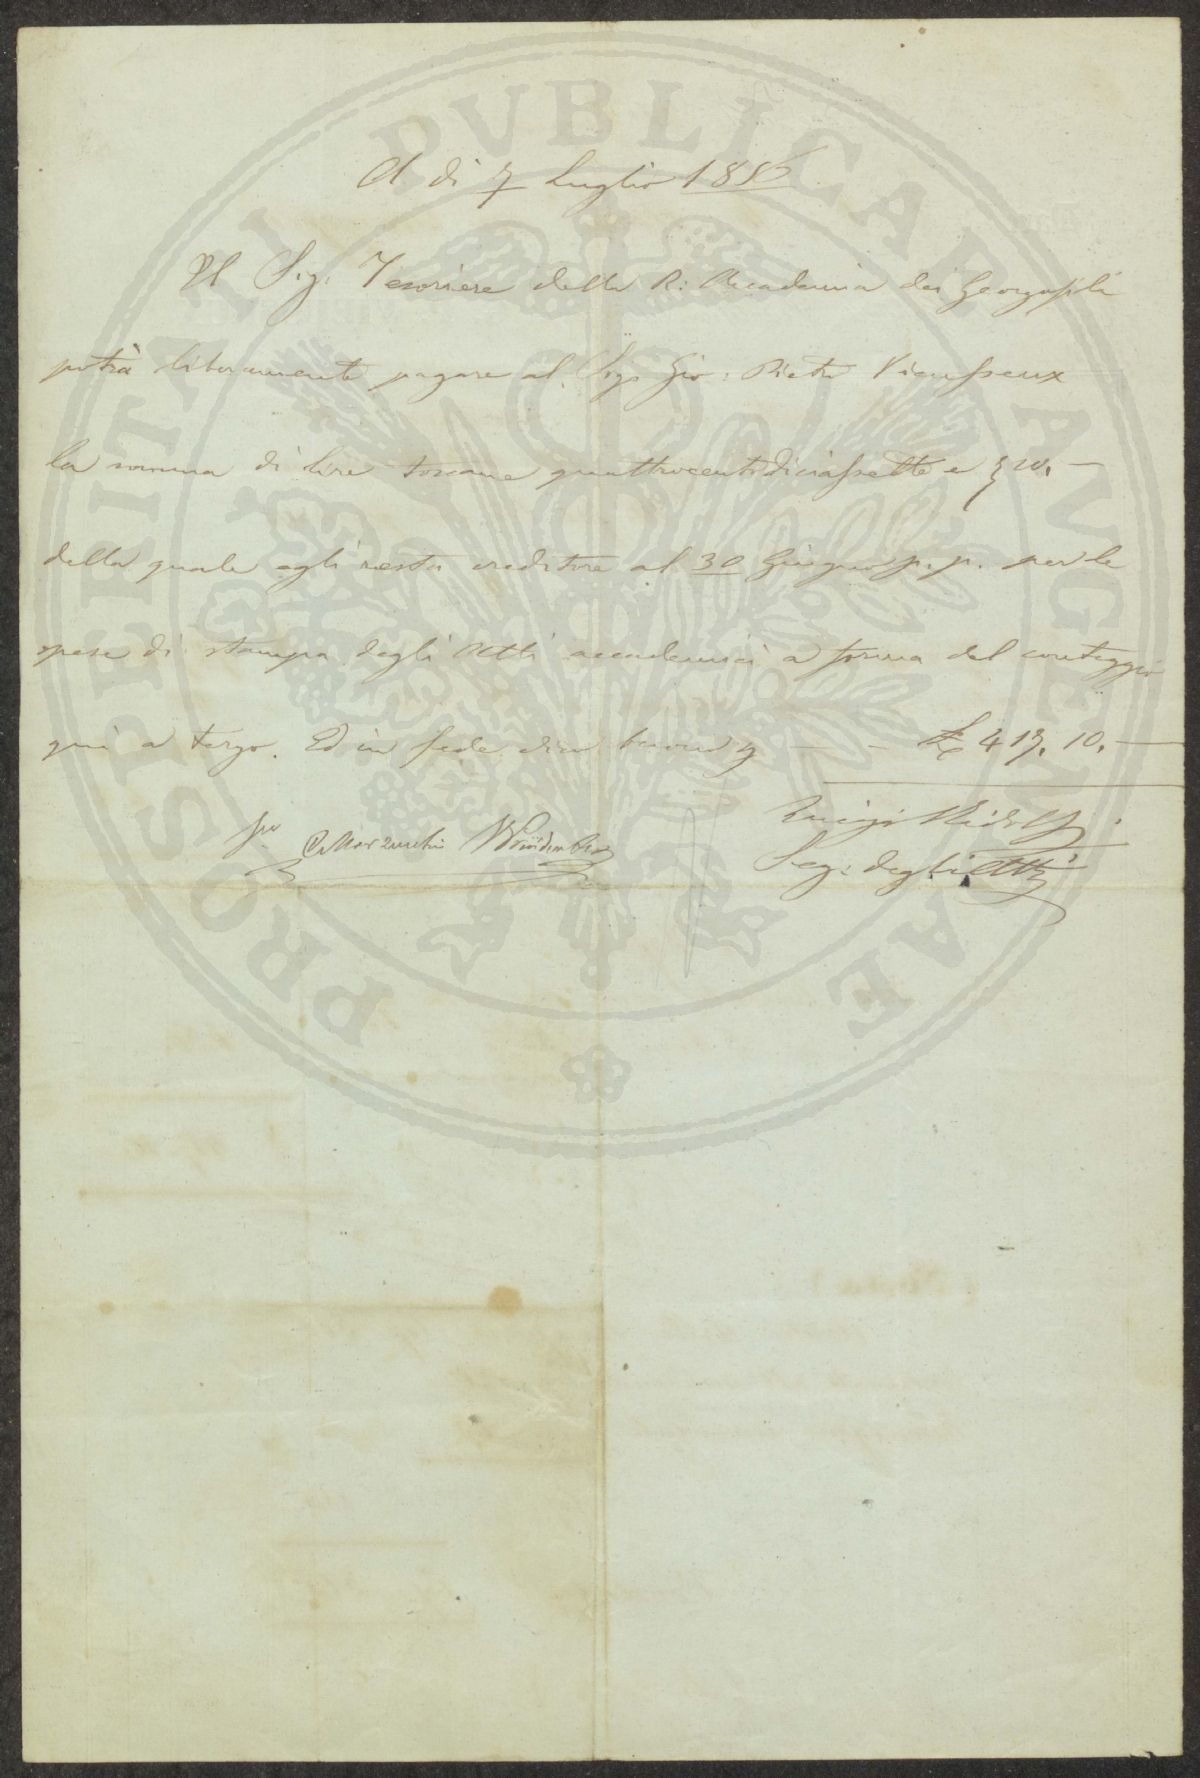 A dì 7 Luglio 1856
Il Sig: Tesoriere della R: Accademia dei Georgofili
potrà liberamente pagare al Sig: Gio: Pietro Vieusseux
la somma di lire toscane quattrocentodiciassette e 10. —
della quale egli resta creditore al 30 Giugno p.p. per le
spese di stampa degli Atti accademici a forma del conteggio
qui a tergo. Ed in fede dico buono — — £ 417. 10. —
Luigi Ridolfi
C. Marzucchi Presidente
Seg: degli Atti
PROSPERITATI PVBLICAE AVGENDAE